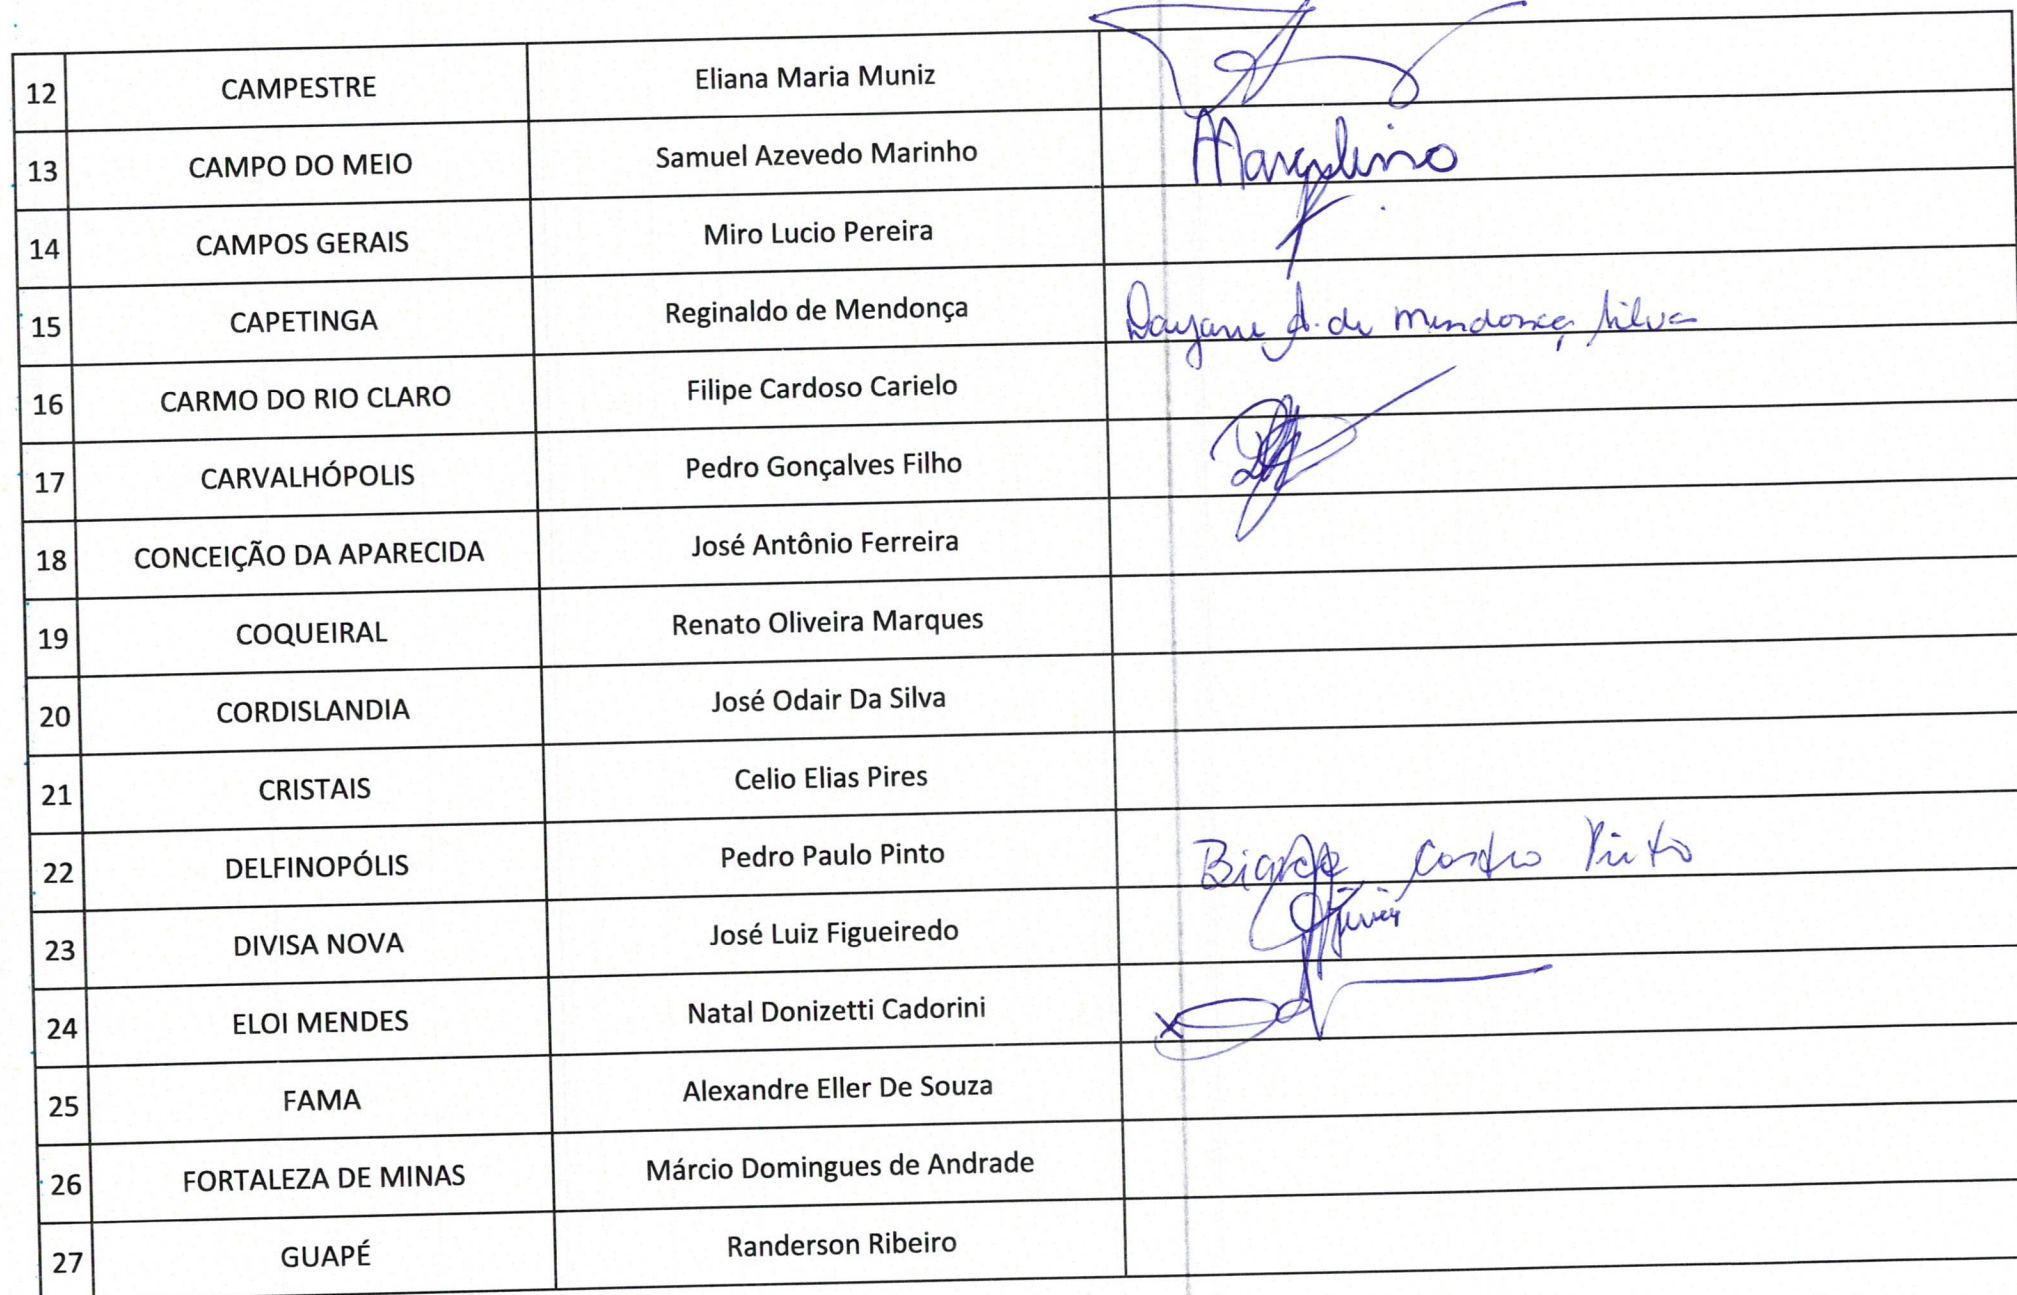 12 CAMPESTRE Eliana Maria Muniz
13 CAMPO DO MEIO Samuel Azevedo Marinho
14 CAMPOS GERAIS Miro Lucio Pereira
15 CAPETINGA Reginaldo de Mendonça Dayane A. de Mendonça Silva
16 CARMO DO RIO CLARO Filipe Cardoso Carielo
17 CARVALHÓPOLIS Pedro Gonçalves Filho
18 CONCEIÇÃO DA APARECIDA José Antônio Ferreira
19 COQUEIRAL Renato Oliveira Marques
20 CORDISLANDIA José Odair Da Silva
21 CRISTAIS Celio Elias Pires
22 DELFINOPÓLIS Pedro Paulo Pinto Castro Pinto
23 DIVISA NOVA José Luiz Figueiredo
24 ELOI MENDES Natal Donizetti Cadorini
25 FAMA Alexandre Eller De Souza
26 FORTALEZA DE MINAS Márcio Domingues de Andrade
27 GUAPÉ Randerson Ribeiro